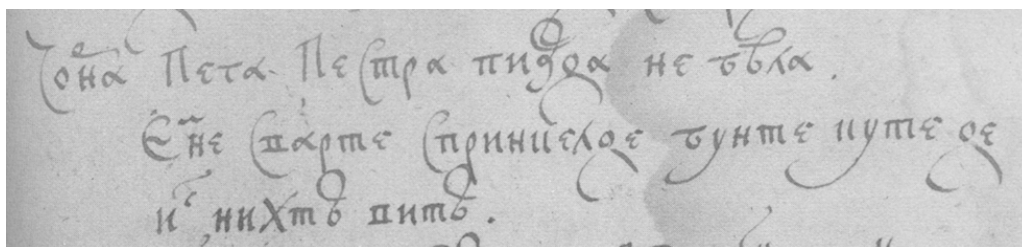 Пета Пестра пизда не была.
Ене спарте спринцелде бунте путе де
ис нихтъ питъ.